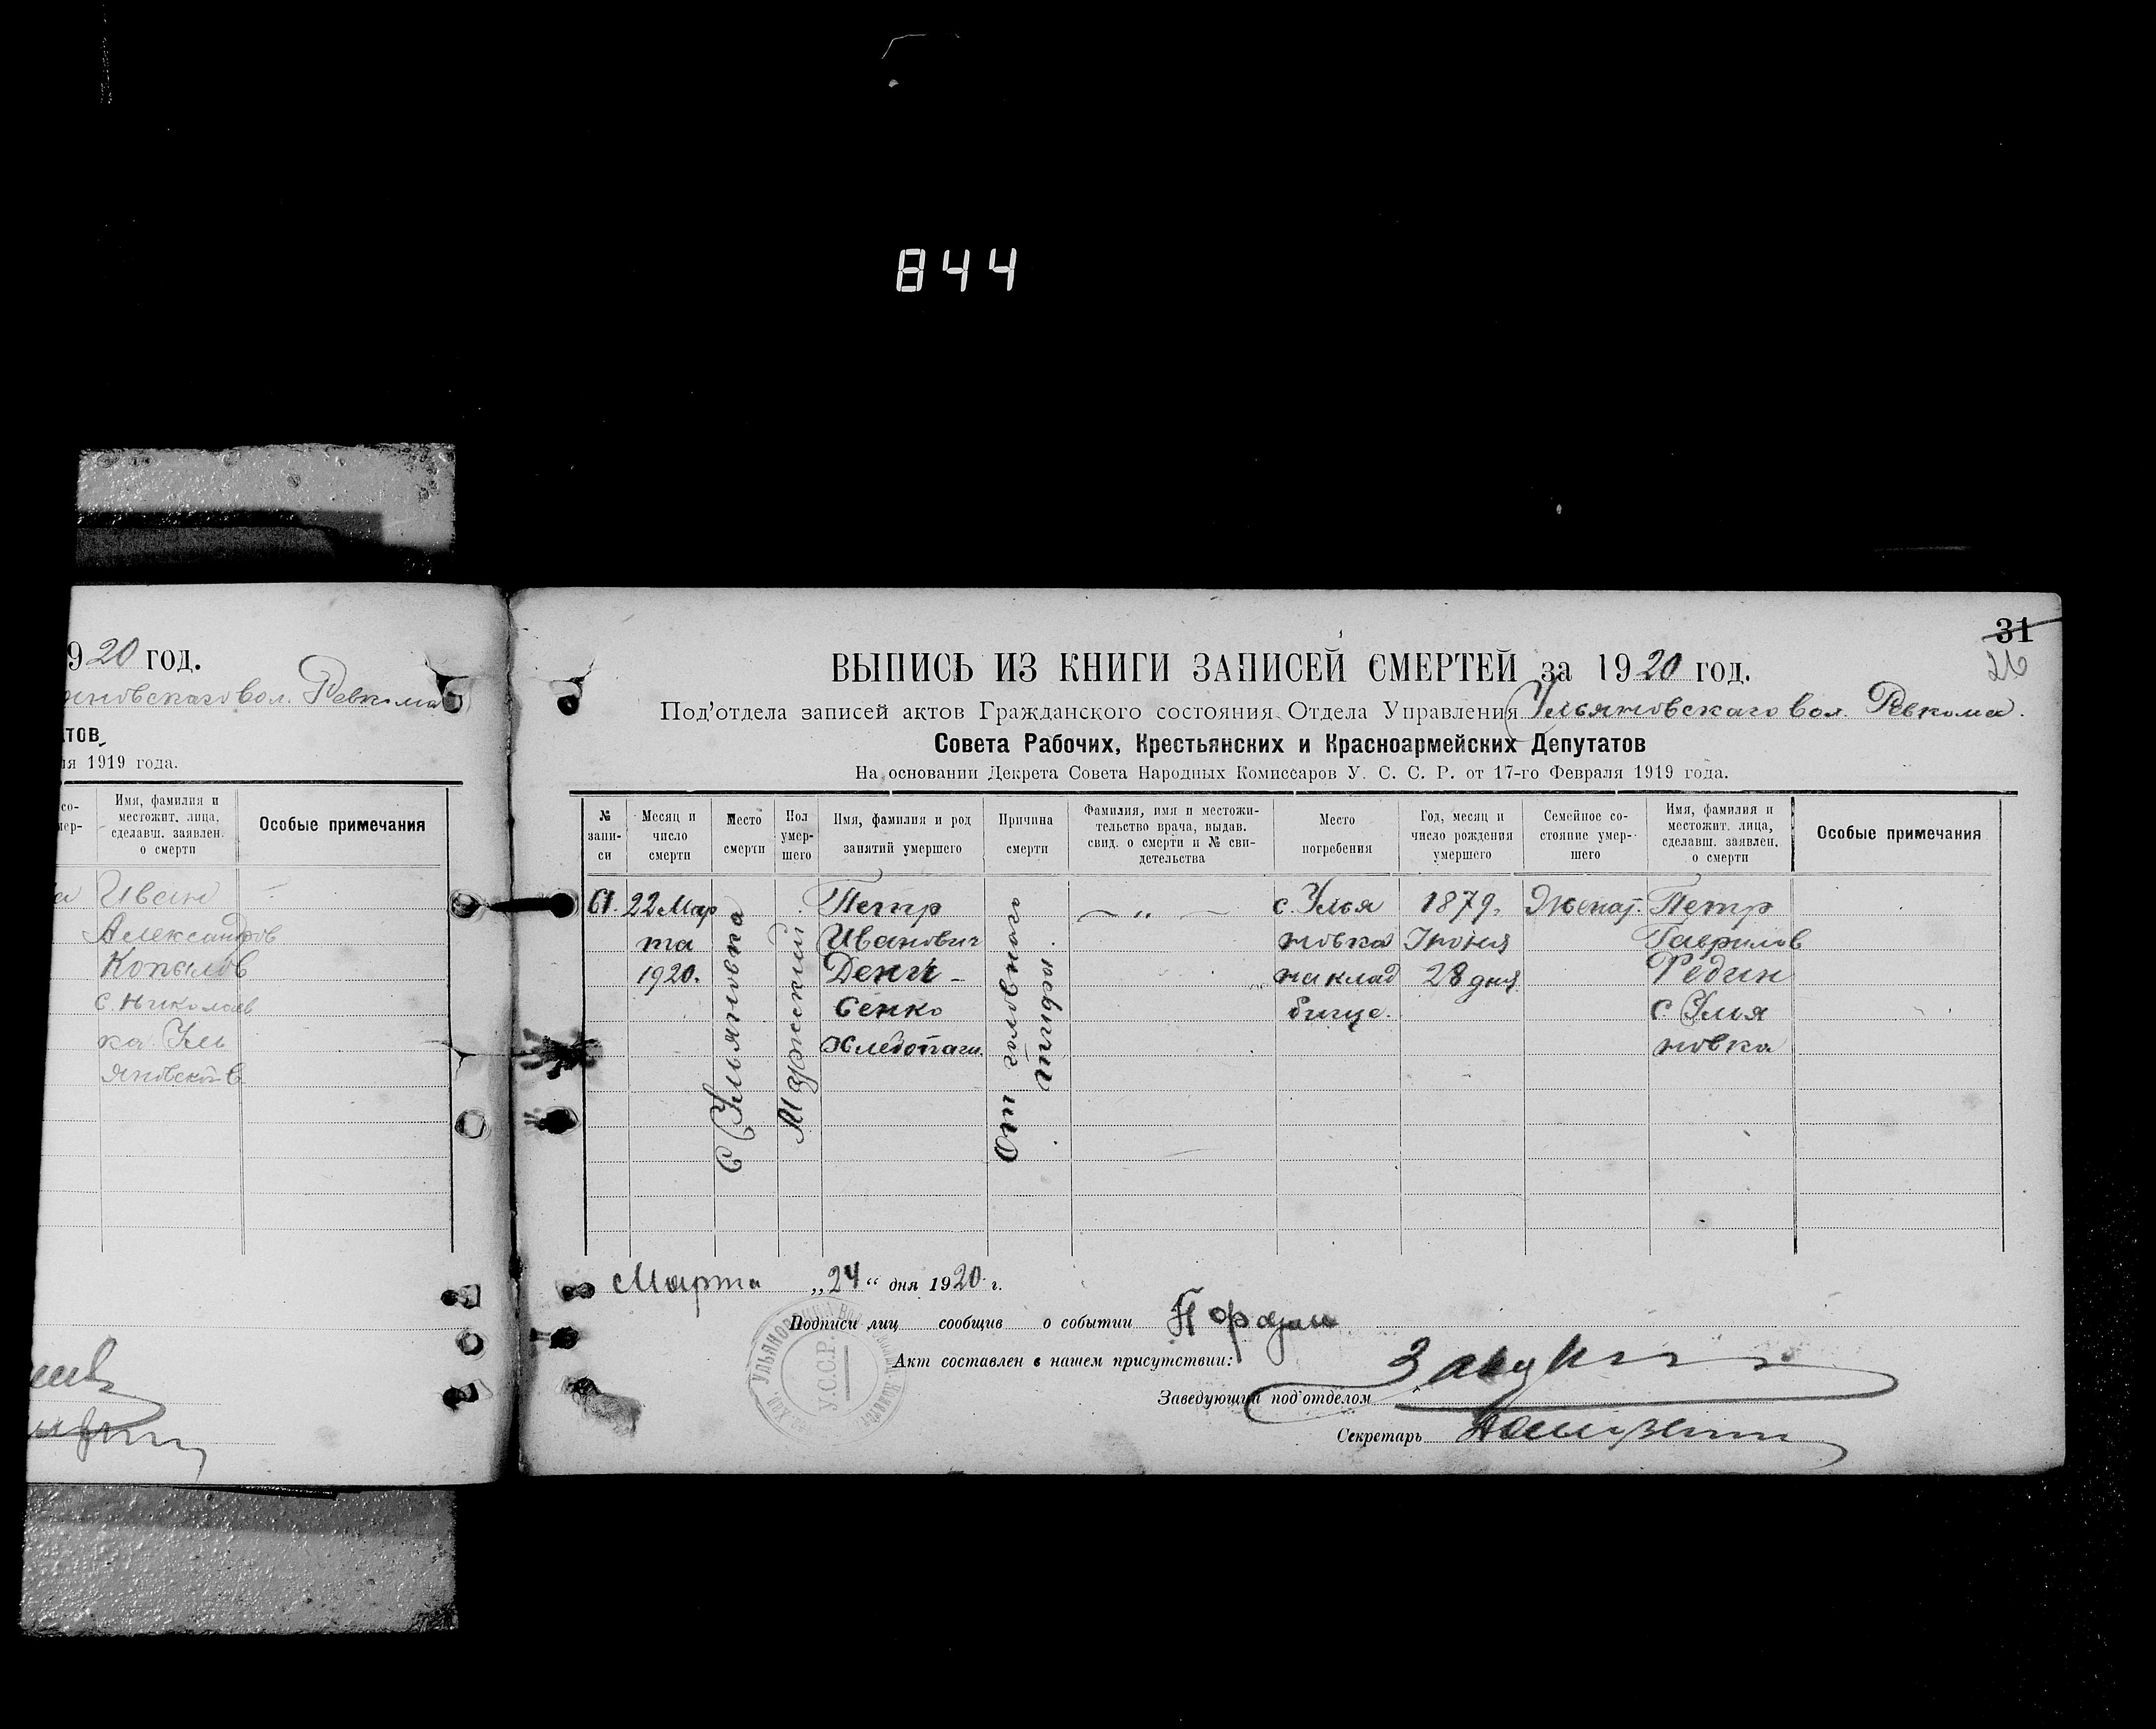 844
920 год.
яновскаго вол. Ревкома
тов
ля 1919 года.
со-
мер-
Имя, фамилия и
местожит. лица,
сделавш. заявлен.
о смерти
Особые примечания
Иван
Александров
Копылов
с. Николаев
ка Уль
яновской в.
31
26
ВЫПИСЬ ИЗ КНИГИ ЗАПИСЕЙ СМЕРТЕЙ за 1920 год.
Под'отдела записей актов Гражданского состояния Отдела Управления Ульяновскаго вол. Ревкома.
Совета Рабочих, Крестьянских и Красноармейских Депутатов
На основании Декрета Совета Народных Комиссаров У. С. С. Р. от 17-го Февраля 1919 года.
№
запи-
си
Месяц и
число
смерти
Место
смерти
Пол
умер-
шего
Имя, фамилия и род
занятий умершего
Причина
смерти
Фамилия, имя и местожи-
тельство врача, выдав.
свид. о смерти и № сви-
детельства
Место
погребения
Год, месяц и
число рождения
умершего
Семейное со-
стояние умер-
шего
Имя, фамилия и
местожит. лица,
сделавш. заявлен.
о смерти
Особые примечания
61.
22 Мар
та
1920.
С Ульяновка
Мужеский
Петр
Иванович
Дени-
сенко
Хлебопаш.
От головного
— „ —
с. Улья
новка
на клад
бище.
1879.
Июня
28 дня
Женат.
Петр
Гаврилов
Редин
с Улья
новка
Марта „24“ дня 1920 г.
Подписи лиц сообщив о событии
Акт составлен в нашем присутствии:
Заведующий под'отделом
Секретарь
У.С.С.Р.